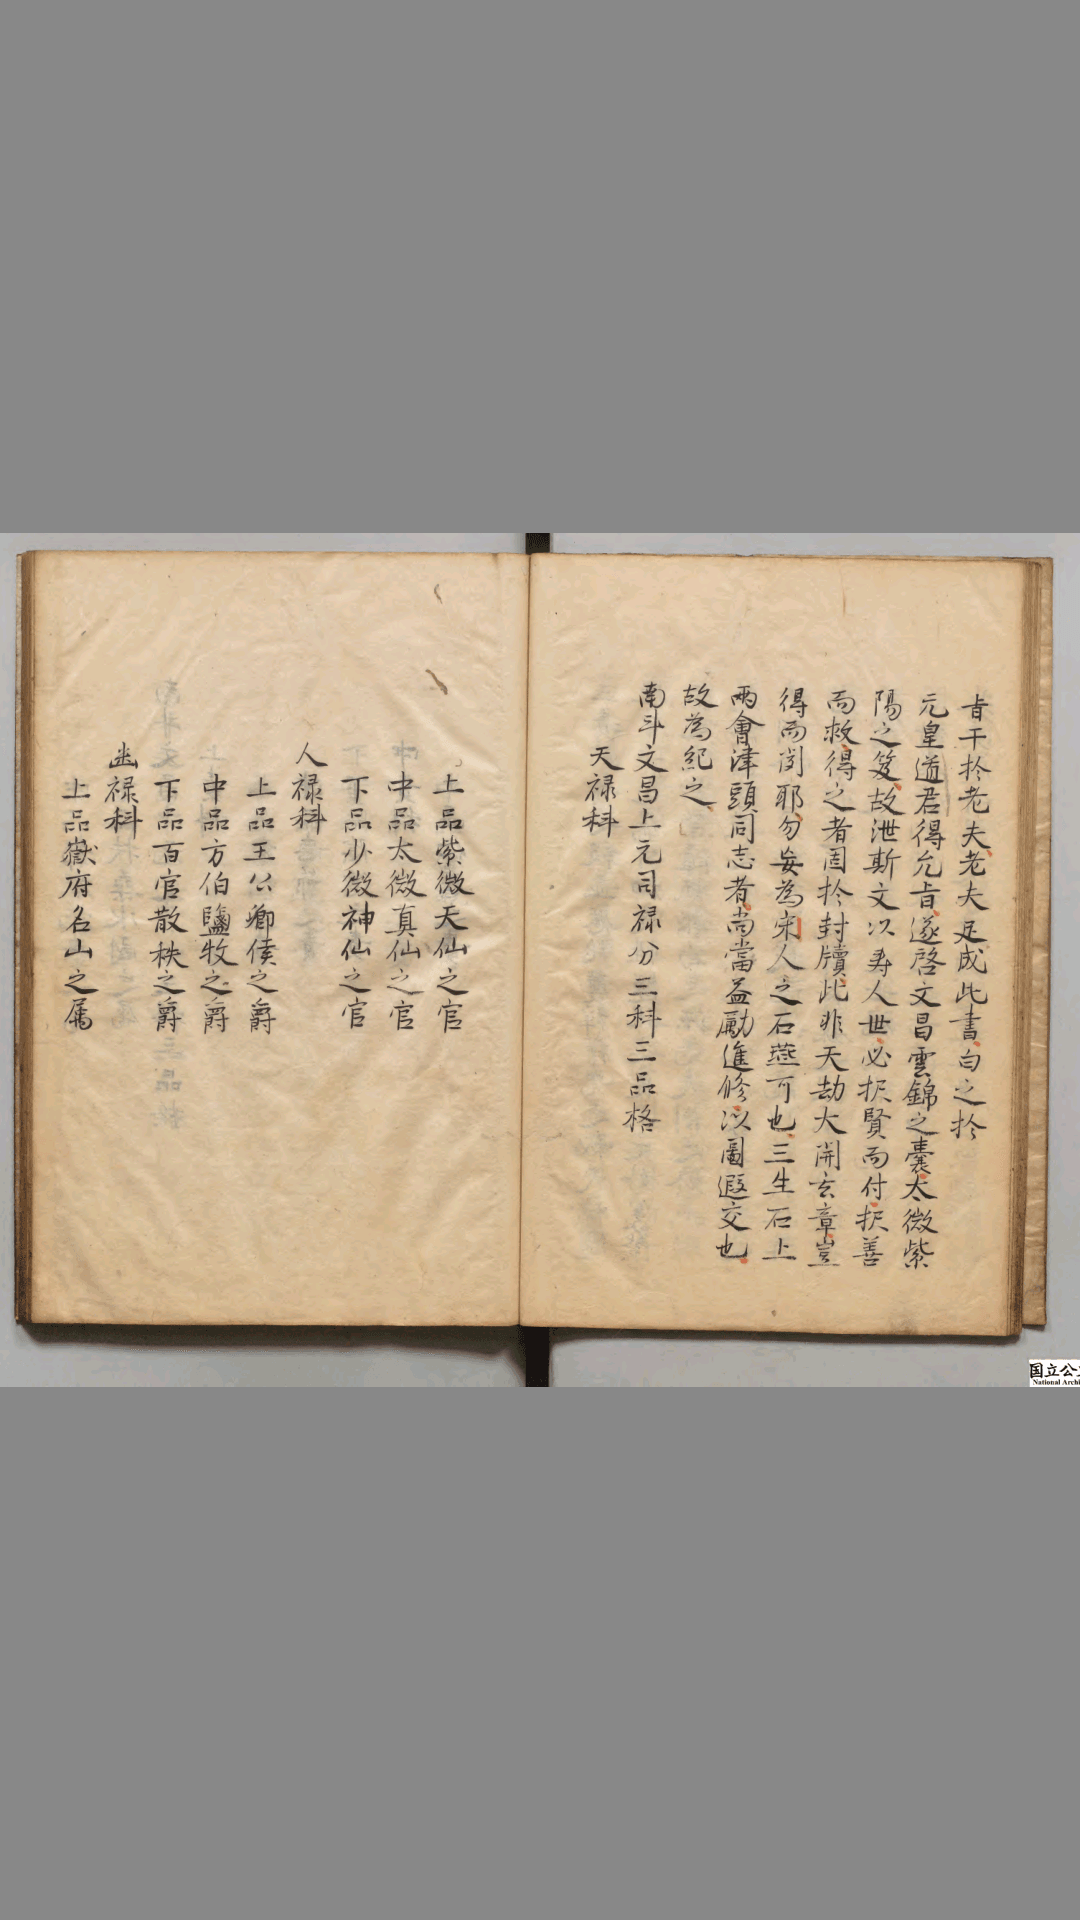 旨干扵老夫老夫足成此書白之扵
元皇道君得允旨遂啓文昌雲錦之囊太微紫
陽之笈故泄斯文以寿人世必択賢而付択善
而救得之者固扵封牘此非天劫大開玄章豈
得而閲耶勿妄為宋人之石燕可也三生石上
兩會津頭同志者尚當益勵進修以圖遐交也
故為紀之
南斗文昌上元司禄分三科三品格
天禄科
上品紫微天仙之官
中品太微真仙之官
下品少微神仙之官
人禄科
上品王公卿侯之爵
中品方伯鹽牧之爵
下品百官散秩之爵
幽禄科
上品嶽府名山之属
国立公
National Archi